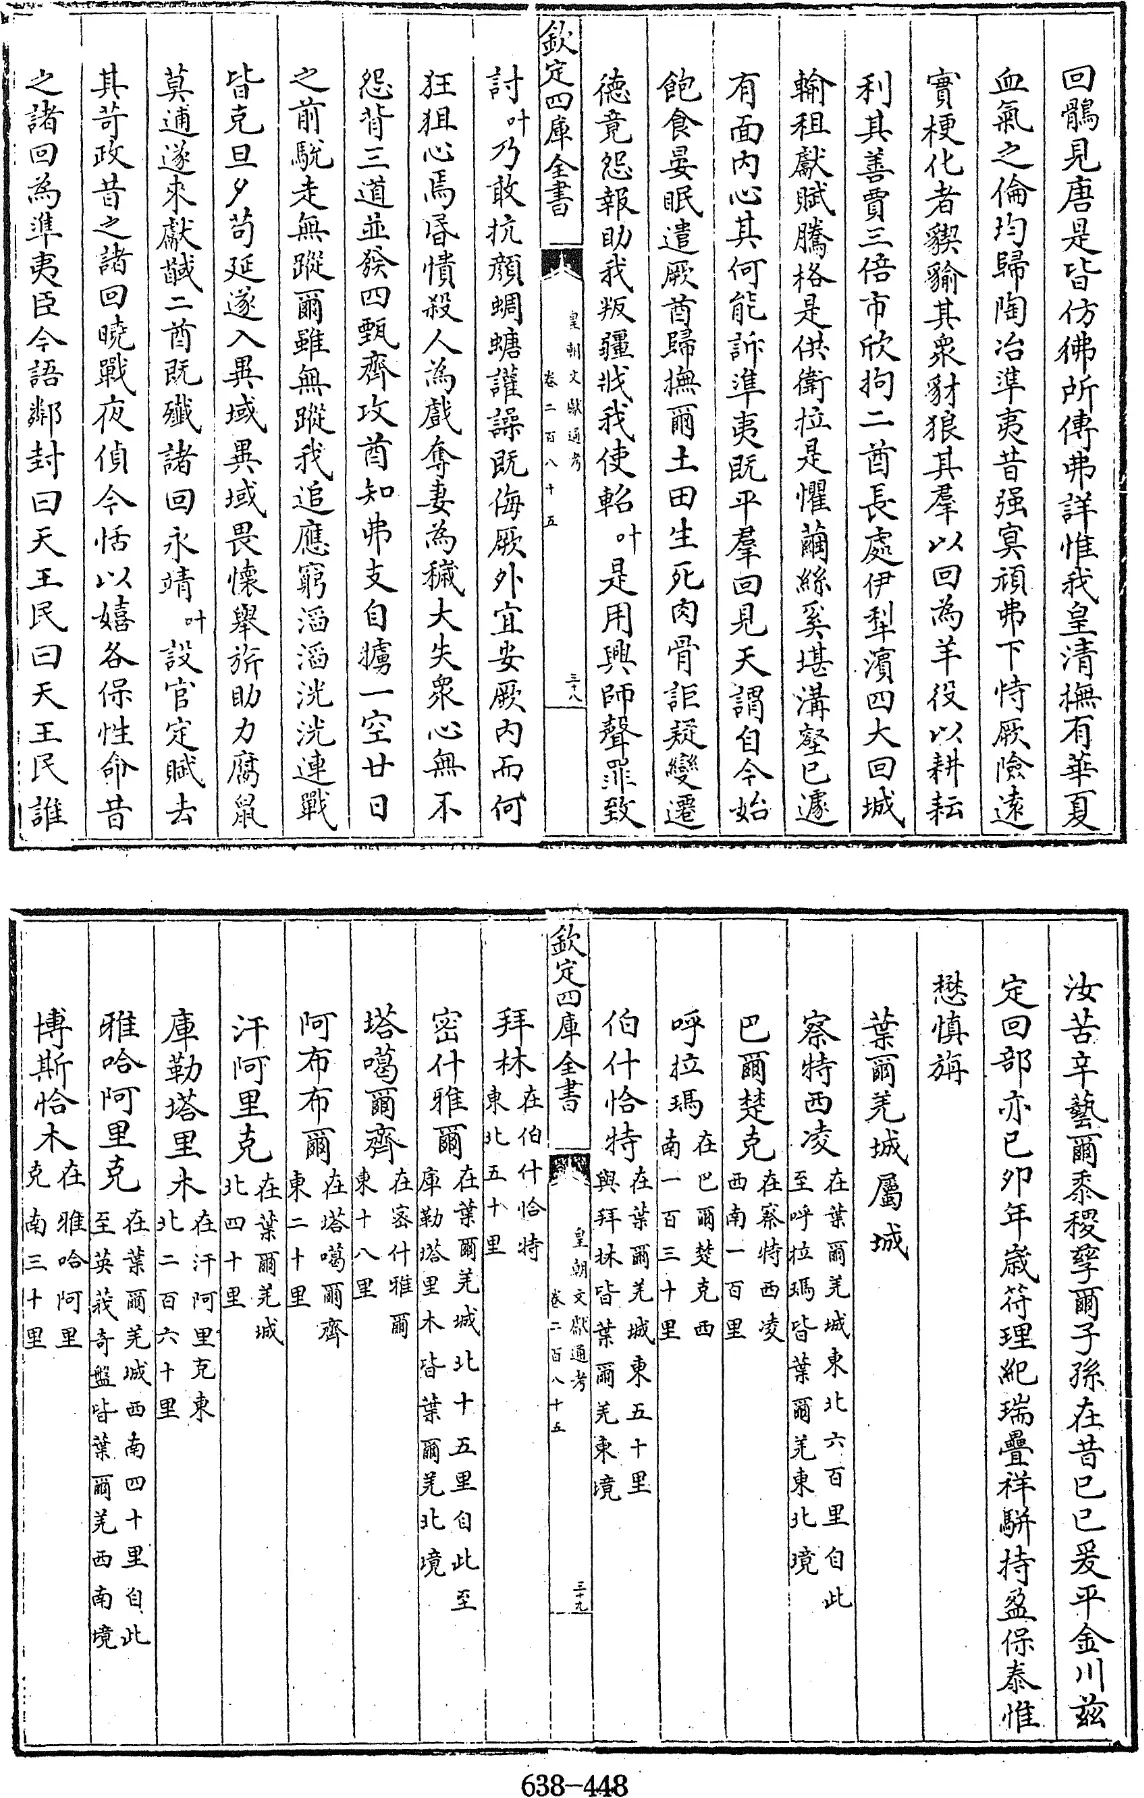 回鶻見唐是皆仿彿所傳弗詳惟我皇清撫有華夏
血氣之倫均歸陶冶準夷昔强寘頑弗下恃厥險遠
實梗化者貏貐其衆豺狼其羣以回為羊役以耕耘
利其善賈三倍市欣拘二酋長處伊犂濱四大回城
輸租獻賦騰格是供衛拉是懼繭絲奚堪溝壑已遽
有面内心其何能訴準夷既平羣回見天謂自今始
飽食晏眠遣厥酋歸撫爾土田生死肉骨詎疑變遷
德竟怨報助我叛疆戕我使軺叶是用興師聲罪致
欽定四庫全書
皇朝文獻通考
卷二百八十五
三十八
討叶乃敢抗顔蜩螗讙譟既侮厥外宜安厥内而何
狂狙心焉昏憒殺人為戲奪妻為穢大失衆心無不
怨背三道並發四甄齊攻酋知弗支自擄一空廿日
之前駾走無蹤爾雖無蹤我追應窮滔滔洸洸連戰
皆克旦夕苟延遂入異域異域畏懷舉旂助力腐鼠
莫逋遂來獻馘二酋既殲諸回永靖叶設官定賦去
其苛政昔之諸回曉戰夜偵今恬以嬉各保性命昔
之諸回為準夷臣今語鄰封曰天王民曰天王民誰
汝苦辛藝爾黍稷孳爾子孫在昔己巳爰平金川兹
定回部亦己卯年歲符理紀瑞疊祥駢持盈保泰惟
懋慎旃
葉爾羌城屬城
察特西凌在葉爾羌城東北六百里自此至呼拉瑪皆葉爾羌東北境
巴爾楚克在察特西凌西南一百里
呼拉瑪在巴爾楚克西南一百三十里
伯什恰特在葉爾羌城東五十里與拜林皆葉爾羌東境
欽定四庫全書
皇朝文獻通考
卷二百八十五
三十九
拜林在伯什恰特東北五十里
密什雅爾在葉爾羌城北十五里自此至庫勒塔里木皆葉爾羌北境
塔噶爾齊在密什雅爾東十八里
阿布布爾在塔噶爾齊東二十里
汗阿里克在葉爾羌城北四十里
庫勒塔里木在汗阿里克東北二百六十里
雅哈阿里克在葉爾羌城西南四十里自此至英莪奇盤皆葉爾羌西南境
博斯恰木在雅哈阿里克南三十里
638-448